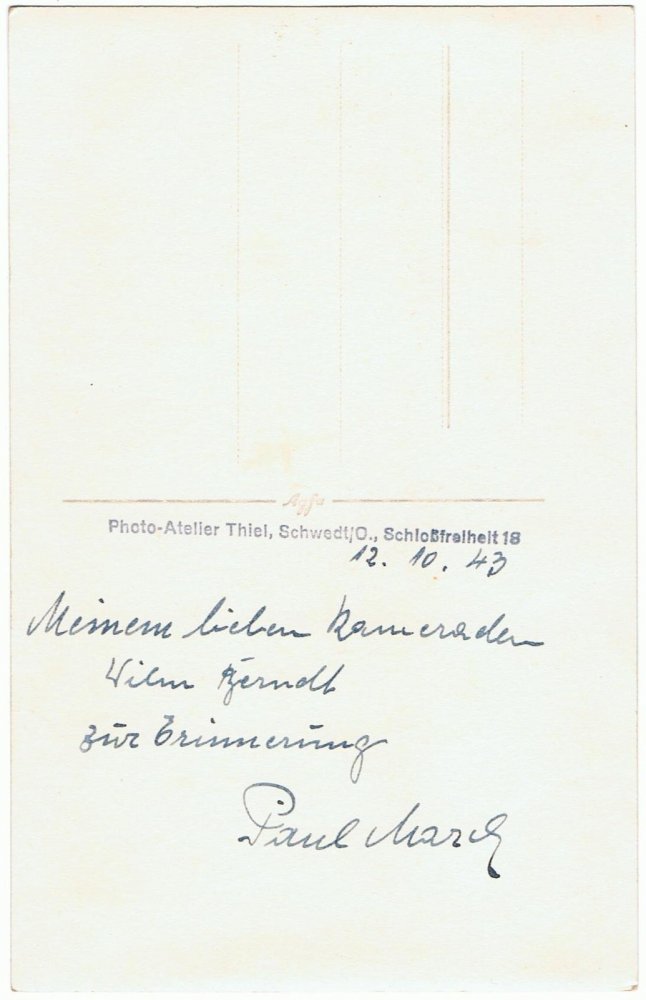 Agfa
Photo-Atelier Thiel, Schwedt/O., Schloßfreiheit 18
12. 10. 43
Meinem lieben Kameraden
Wilm Berndt
zur Erinnerung
Paul March